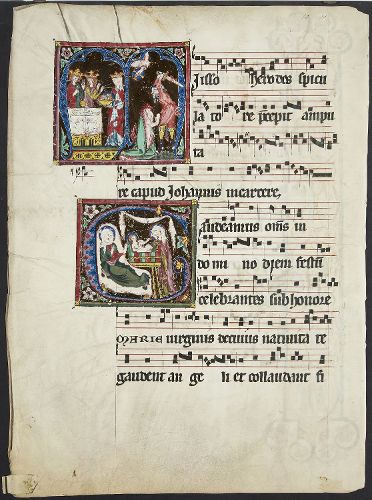 isso herodes spicu
la to re precepit ampu
ta
re capud Johannis incarcere,
audeamus om̅s in
domi no diem festū
celebrantes sub honore
MARIE virginis de cuius nativita te
gaudent an ge li et collaudant fi